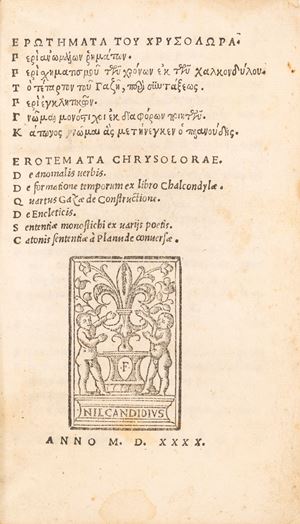 ΕΡΩΤΗΜΑΤΑ ΤΟΥ ΧΡΥΣΟΛΩΡΑ
Περὶ ἀνωμάλων ῥημάτων.
Περὶ χηματισμοῦ τῶν χρόνων ἐκ τῶν Χαλκονδύλου.
Τὸ τέταρτον τοῦ Γαζῆ, περὶ συντάξεως.
Περὶ ἐγκλιτικῶν.
Γνῶμαι μονόστιχοι ἐκ διαφόρων ποιητῶν.
Κάτωνος γνῶμαι ἃς μετήνεγκεν ὁ πλανούδης.
EROTEMATA CHRYSOLORAE.
De anomalis uerbis.
De formatione temporum ex libro Chalcondylæ.
Quartus Gazæ de Constructione.
De Encleticis.
Sententiæ monostichi ex uarijs poetis.
Catonis sententiæ à Planude conuersæ.
F
NIL CANDIDIVS
ANNO M. D. XXXX.